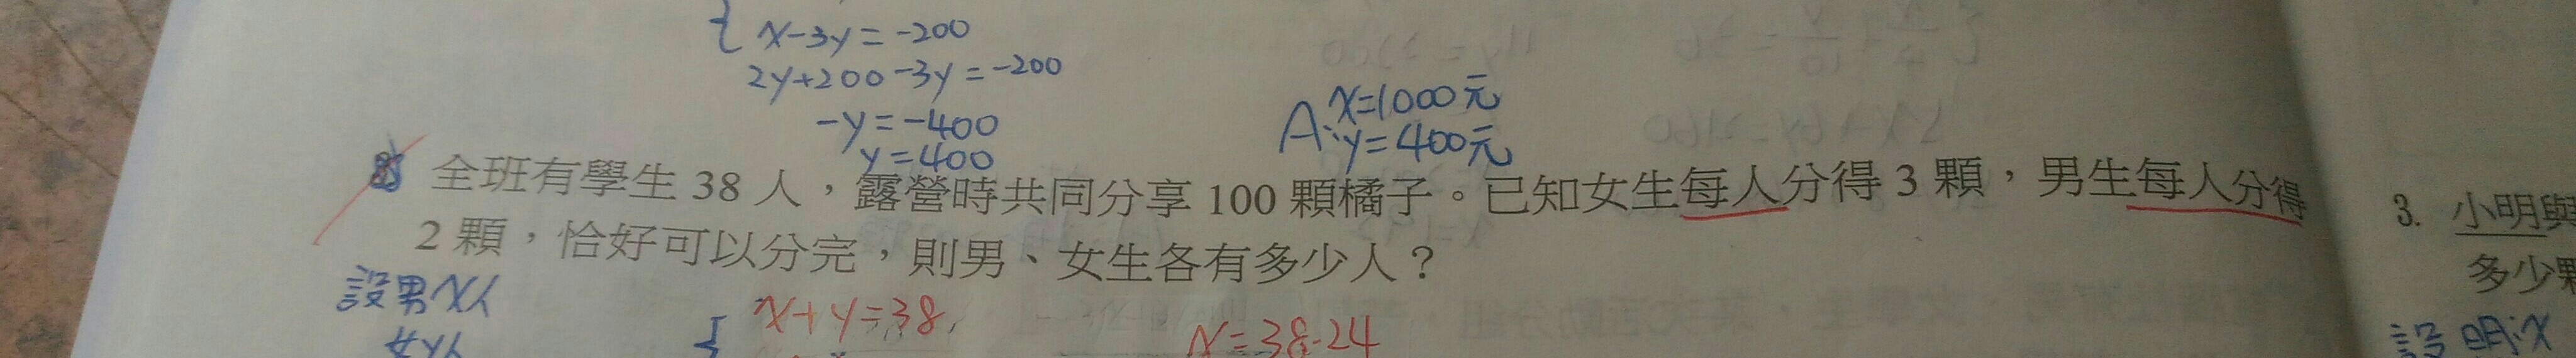 { x-3y=-200
2y+200-3y=-200
-y=-400
y=400
A: x=1000元
y=400元
全班有學生 38 人，露營時共同分享 100 顆橘子。已知女生每人分得 3 顆，男生每人分得
2 顆，恰好可以分完，則男、女生各有多少人？
設男x人
女y人
{ x+y=38
x=38-24
3. 小明與
多少顆
設明:x